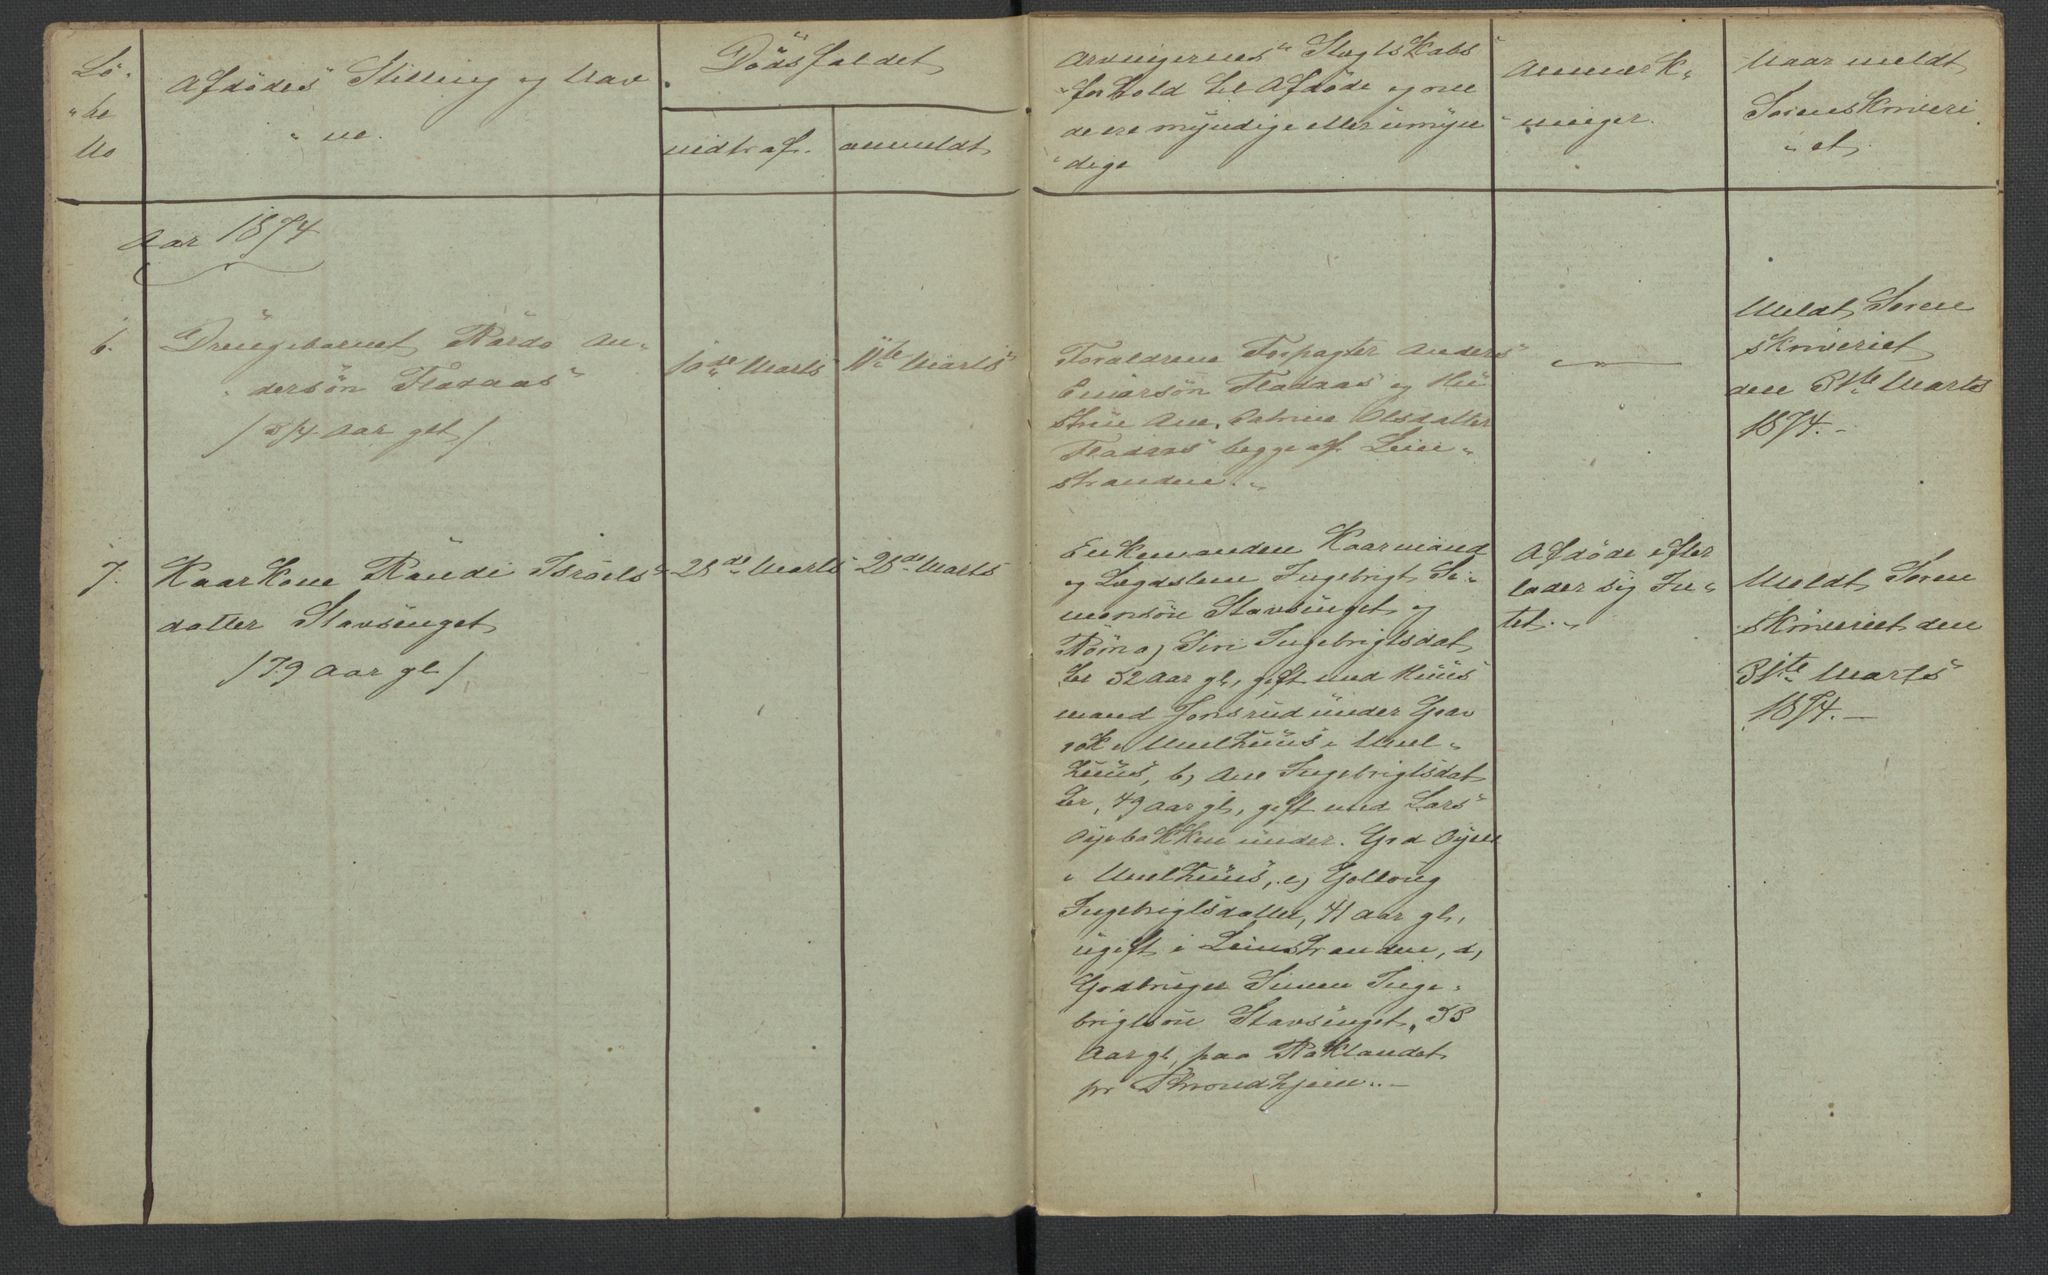 Lö-
"be
No
Afdödes Stilling og Nav
"ne.
Dödsfaldet
indtraf.
anmeldt
Arvingernes Slægtskabs
"forhold til Afdöde og om
de ere myndige eller umyn
"dige
Anmærk"
"ninger.
Naar meldt
Sorenskriveri
"et.
Aar 1874
6.
Drengebarnet Peder An"
"dersön Fladaas
/ 3/4 Aar glt /
10de Marts
11te Marts
Forældrene Forpagter Anders
Einarsön Fladaas og Hu
strue Ane Olsdatter
Fladaas begge af Lein"
stranden.
Meldt Soren
skriveriet
den 31te Marts
1874.-
7.
Kaarkone Randi Israels"
datter Stavsenget
/ 79 Aar gl /
28de Marts
28de Marts
Enkemanden Kaarmand
og Lægdslem Ingebrigt Si"
monsön Stavsenget og
Börn a, Siri Ingebrigtsdat
ter 52 Aar gl, gift med Huus
mand Jonsrud under Grav
rok i Melhuus i Mel"
huus, b, Ane Ingebrigtsdat
ter, 49 Aar gl, gift med Lars
Öyebakken under Grd Öyen
i Melhuus, c, Gollaug
Ingebrigtsdatter, 41 Aar gl,
ugift i Leinstranden, d,
Grdbruger Simen Inge"
brigtsön Stavsenget, 38
Aar gl, paa Roklandet
pr Throndhjem.-
Afdöde efter
lader sig In"
tet.
Meldt Soren
skriveriet den
31te Marts
1874.-